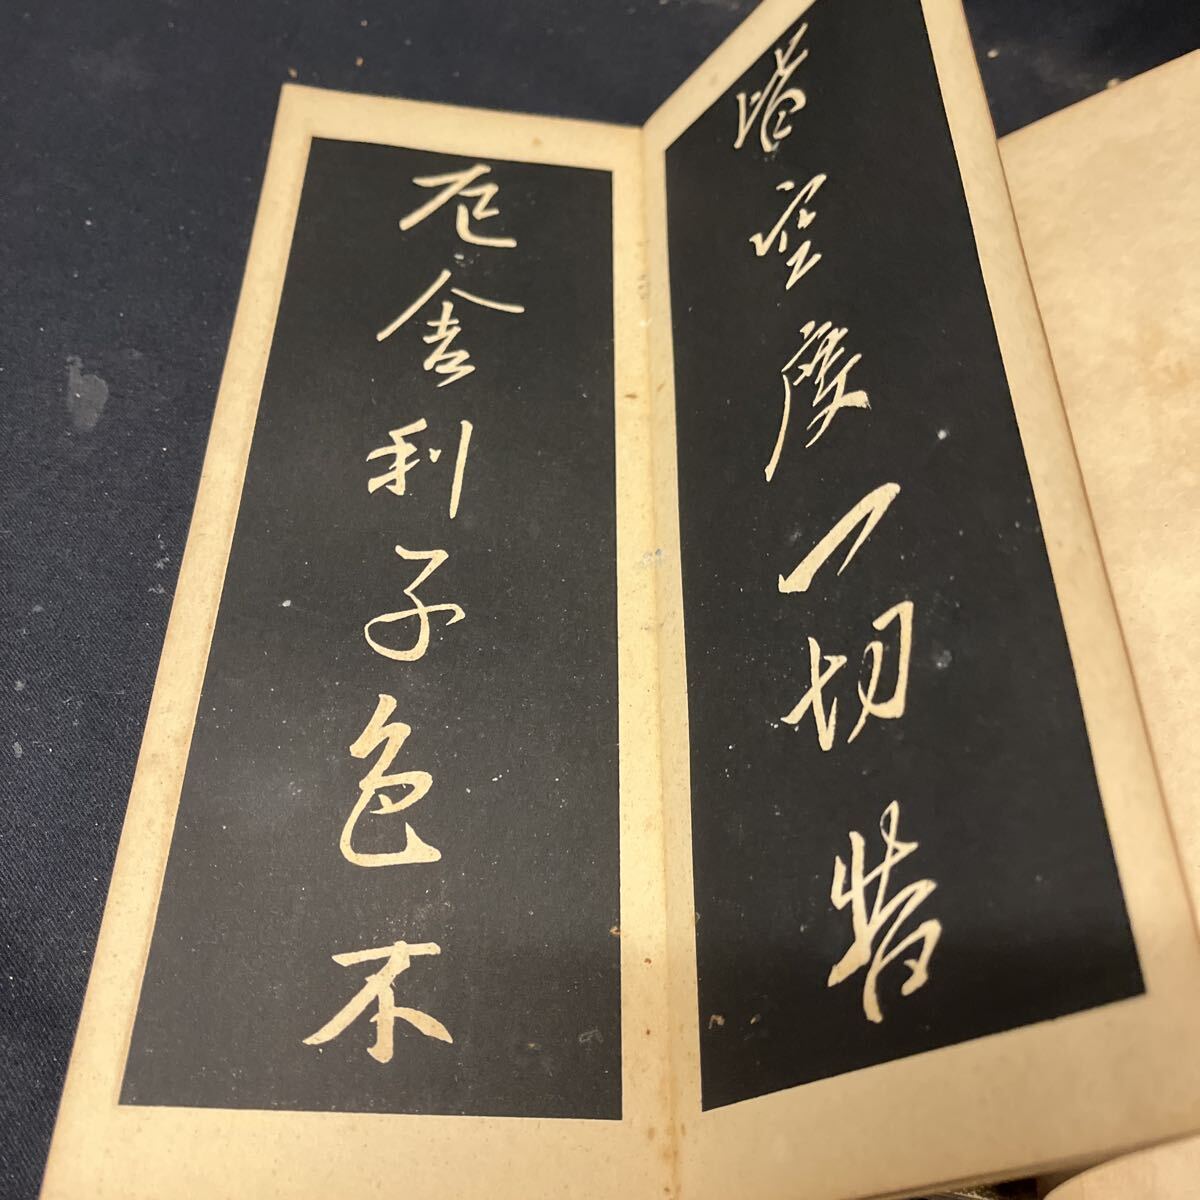 皆空度一切苦
厄舍利子色不